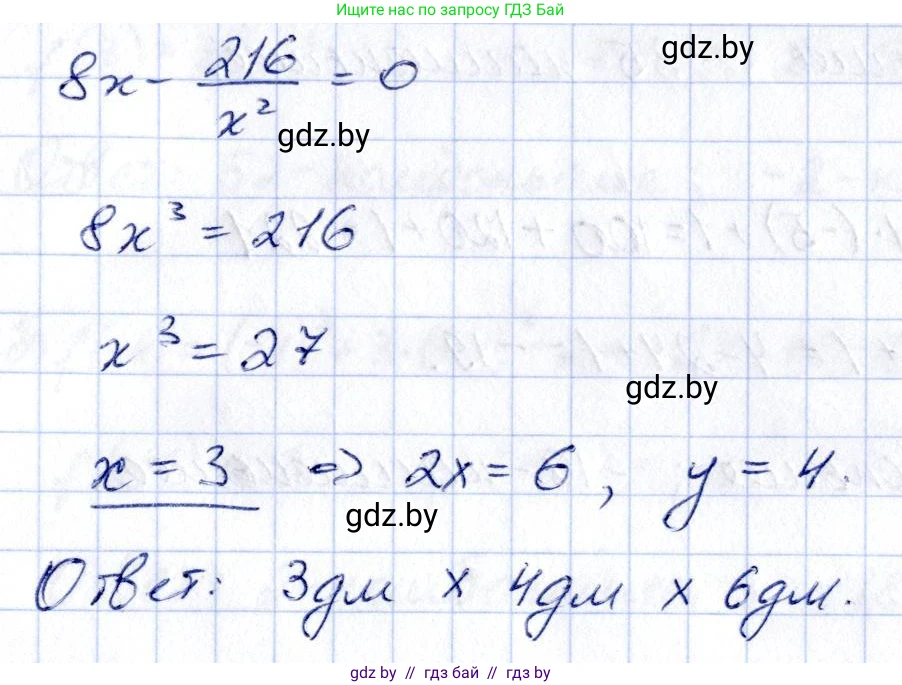 Ищите нас по запросу ГДЗ Бай
gdz.by
8x - 216/x² = 0
gdz.by
8x³ = 216
x³ = 27
gdz.by
x = 3 => 2x = 6, y = 4.
gdz.by
Ответ: 3дм x 4дм x 6дм.
gdz by // гдз бай // гдз by